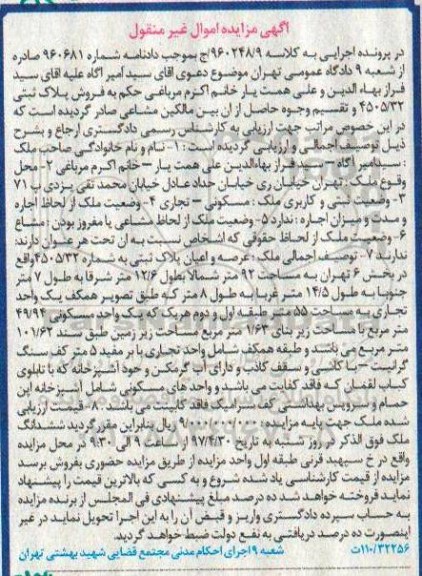 آگهی مزایده اموال غیر منقول
در پرونده اجرایی به کلاسه ۹۶۰۲۴۸/۹ج بموجب دادنامه شماره ۹۶۰۶۸۱ صادره
از شعبه ۹ دادگاه عمومی تهران موضوع دعوی آقای سید امیر آگاه علیه آقای سید
فراز بهاء الدین و علی همت یار خانم اکرم مرباغی حکم به فروش پلاک ثبتی
۴۵۰۵/۳۲ و تقسیم وجوه حاصل از آن بین مالکین مشاعی صادر گردیده است که
در این خصوص مراتب جهت ارزیابی به کارشناس رسمی دادگستری ارجاع و بشرح
ذیل توصیف اجمالی و ارزیابی گردیده است: ۱- نام و نام خانوادگی صاحب ملک
: سیدامیر آگاه – سید فراز بهاءالدین علی همت یار – خانم اکرم مرباغی ۲- محل
وقوع ملک: تهران خیابان ری خیابان حدادعادل خیابان محمد تقی یزدی پ ۷۱
۳- وضعیت ثبتی و کاربری ملک: مسکونی – تجاری ۴- وضعیت ملک از لحاظ اجاره
و مدت و میزان اجاره: ندارد ۵- وضعیت ملک از لحاظ مشاعی یا مفروز بودن: مشاع
۶- وضعیت ملک از لحاظ حقوقی که اشخاص نسبت به آن تحت هر عنوان دارند:
ندارند ۷- توصیف اجمالی ملک: عرصه و اعیان پلاک ثبتی به شماره ۴۵۰۵/۳۲ واقع
در بخش ۶ تهران به مساحت ۹۲ متر شمالا بطول ۱۲/۶ متر شرقا به طول ۷ متر
جنوبا به طول ۱۴/۵ متر غربا به طول ۸ متر که طبق تصویر همکف یک واحد
تجاری به مساحت ۵۵ متر طبقه اول و دوم هر یک که یک واحد مسکونی ۴۹/۹۴
متر مربع با مساحت زیر بنای ۱/۶۳ متر مربع مساحت زیر زمین طبق سند ۱۰۱/۶۳
متر مربع می باشد و طبقه همکف شامل واحد تجاری با بر مفید ۵ متر کف سنگ
گرانیت – با کاشی و سقف کاذب و دارای آب گرمکن و خود آشپزخانه که با تابلوی
کباب لقمان که فاقد کفایت می باشد و واحد های مسکونی شامل آشپزخانه این
حمام و سرویس بهداشتی کف سرامیک فاقد کابینت می باشند. ۸- قیمت ارزیابی
شده ملک جهت پایه مزایده: ریال بنابراین مقرر گردید ششدانگ
ملک فوق الذکر در روز شنبه به تاریخ ۹۷/۴/۳۰ از ساعت ۹ الی ۹:۳۰ در محل مزایده
واقع در خ سپهبد قرنی طبقه اول واحد مزایده از طریق مزایده حضوری بفروش برسد
مزایده از قیمت کارشناسی یاد شده شروع و به کسی که بالاترین قیمت را پیشنهاد
نماید فروخته خواهد شد ده درصد مبلغ پیشنهادی فی المجلس از برنده مزایده
به حساب سپرده دادگستری واریز و قبض آن را به این اجرا تحویل نماید در غیر
اینصورت ده درصد دریافتی به نفع دولت ضبط خواهد گردید.
۱۱۰/۳۲۲۵۶ث شعبه ۹ اجرای احکام مدنی مجتمع قضایی شهید بهشتی تهران